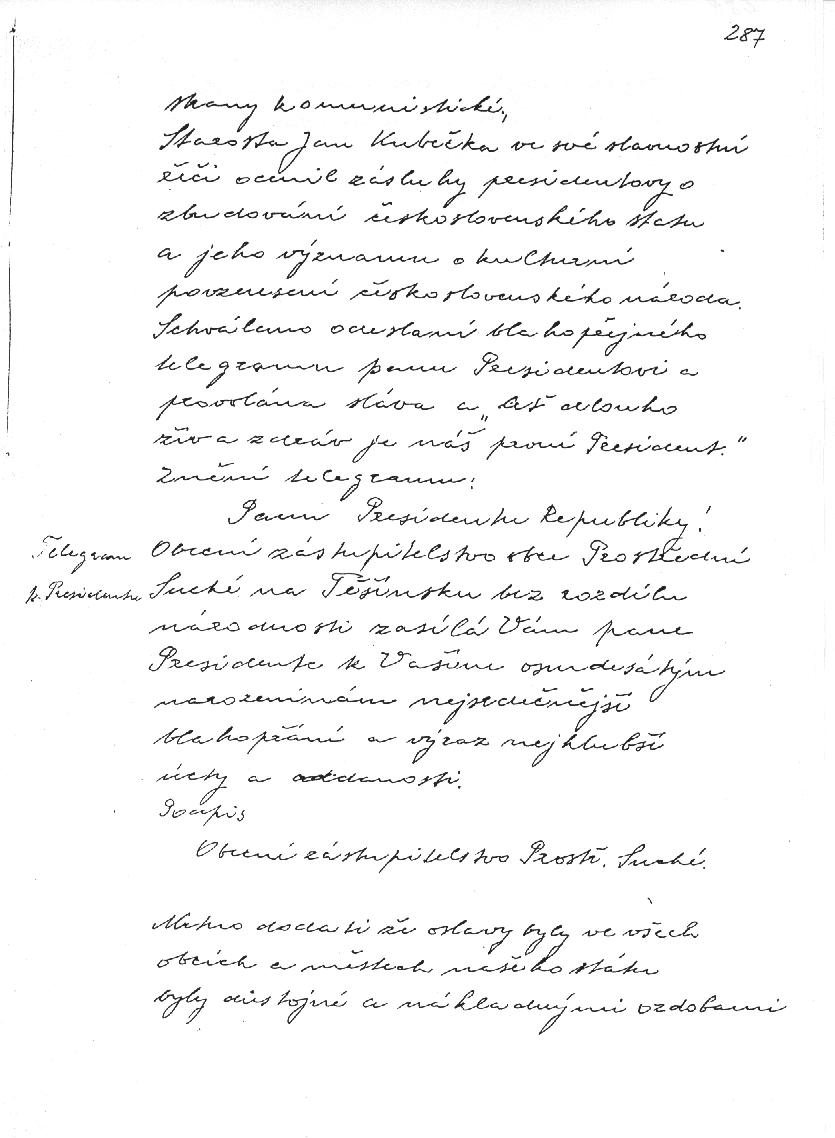 287
strany komunistické,
Starosta Jan Kubečka ve své slavnostní
řeči ocenil zásluhy presidentovy o
zbudování československého státu
a jeho významu o kulturní
povznesení československého národa.
Schváleno odeslaní blahopřejného
telegramu panu Presidentovi a
provolána sláva a „Ať dlouho
živ a zdráv je náš první President."
Znění telegramu:
Panu Presidentu Republiky!
Telegram
p. Presidentu
Obecní zástupitelstvo obce Prostřední
Suché na Těšínsku bez rozdílu
národnosti zasílá Vám pane
Presidente k Vašim osmdesátým
narozeninám nejsrdečnější
blahopřání a výraz nejhlubší
úcty a oddanosti.
Podpis
Obecní zástupitelstvo Prostř. Suché.
Nutno dodati že oslavy byly ve všech
obcích a městech našeho státu
byly důstojné a nákladnými ozdobami